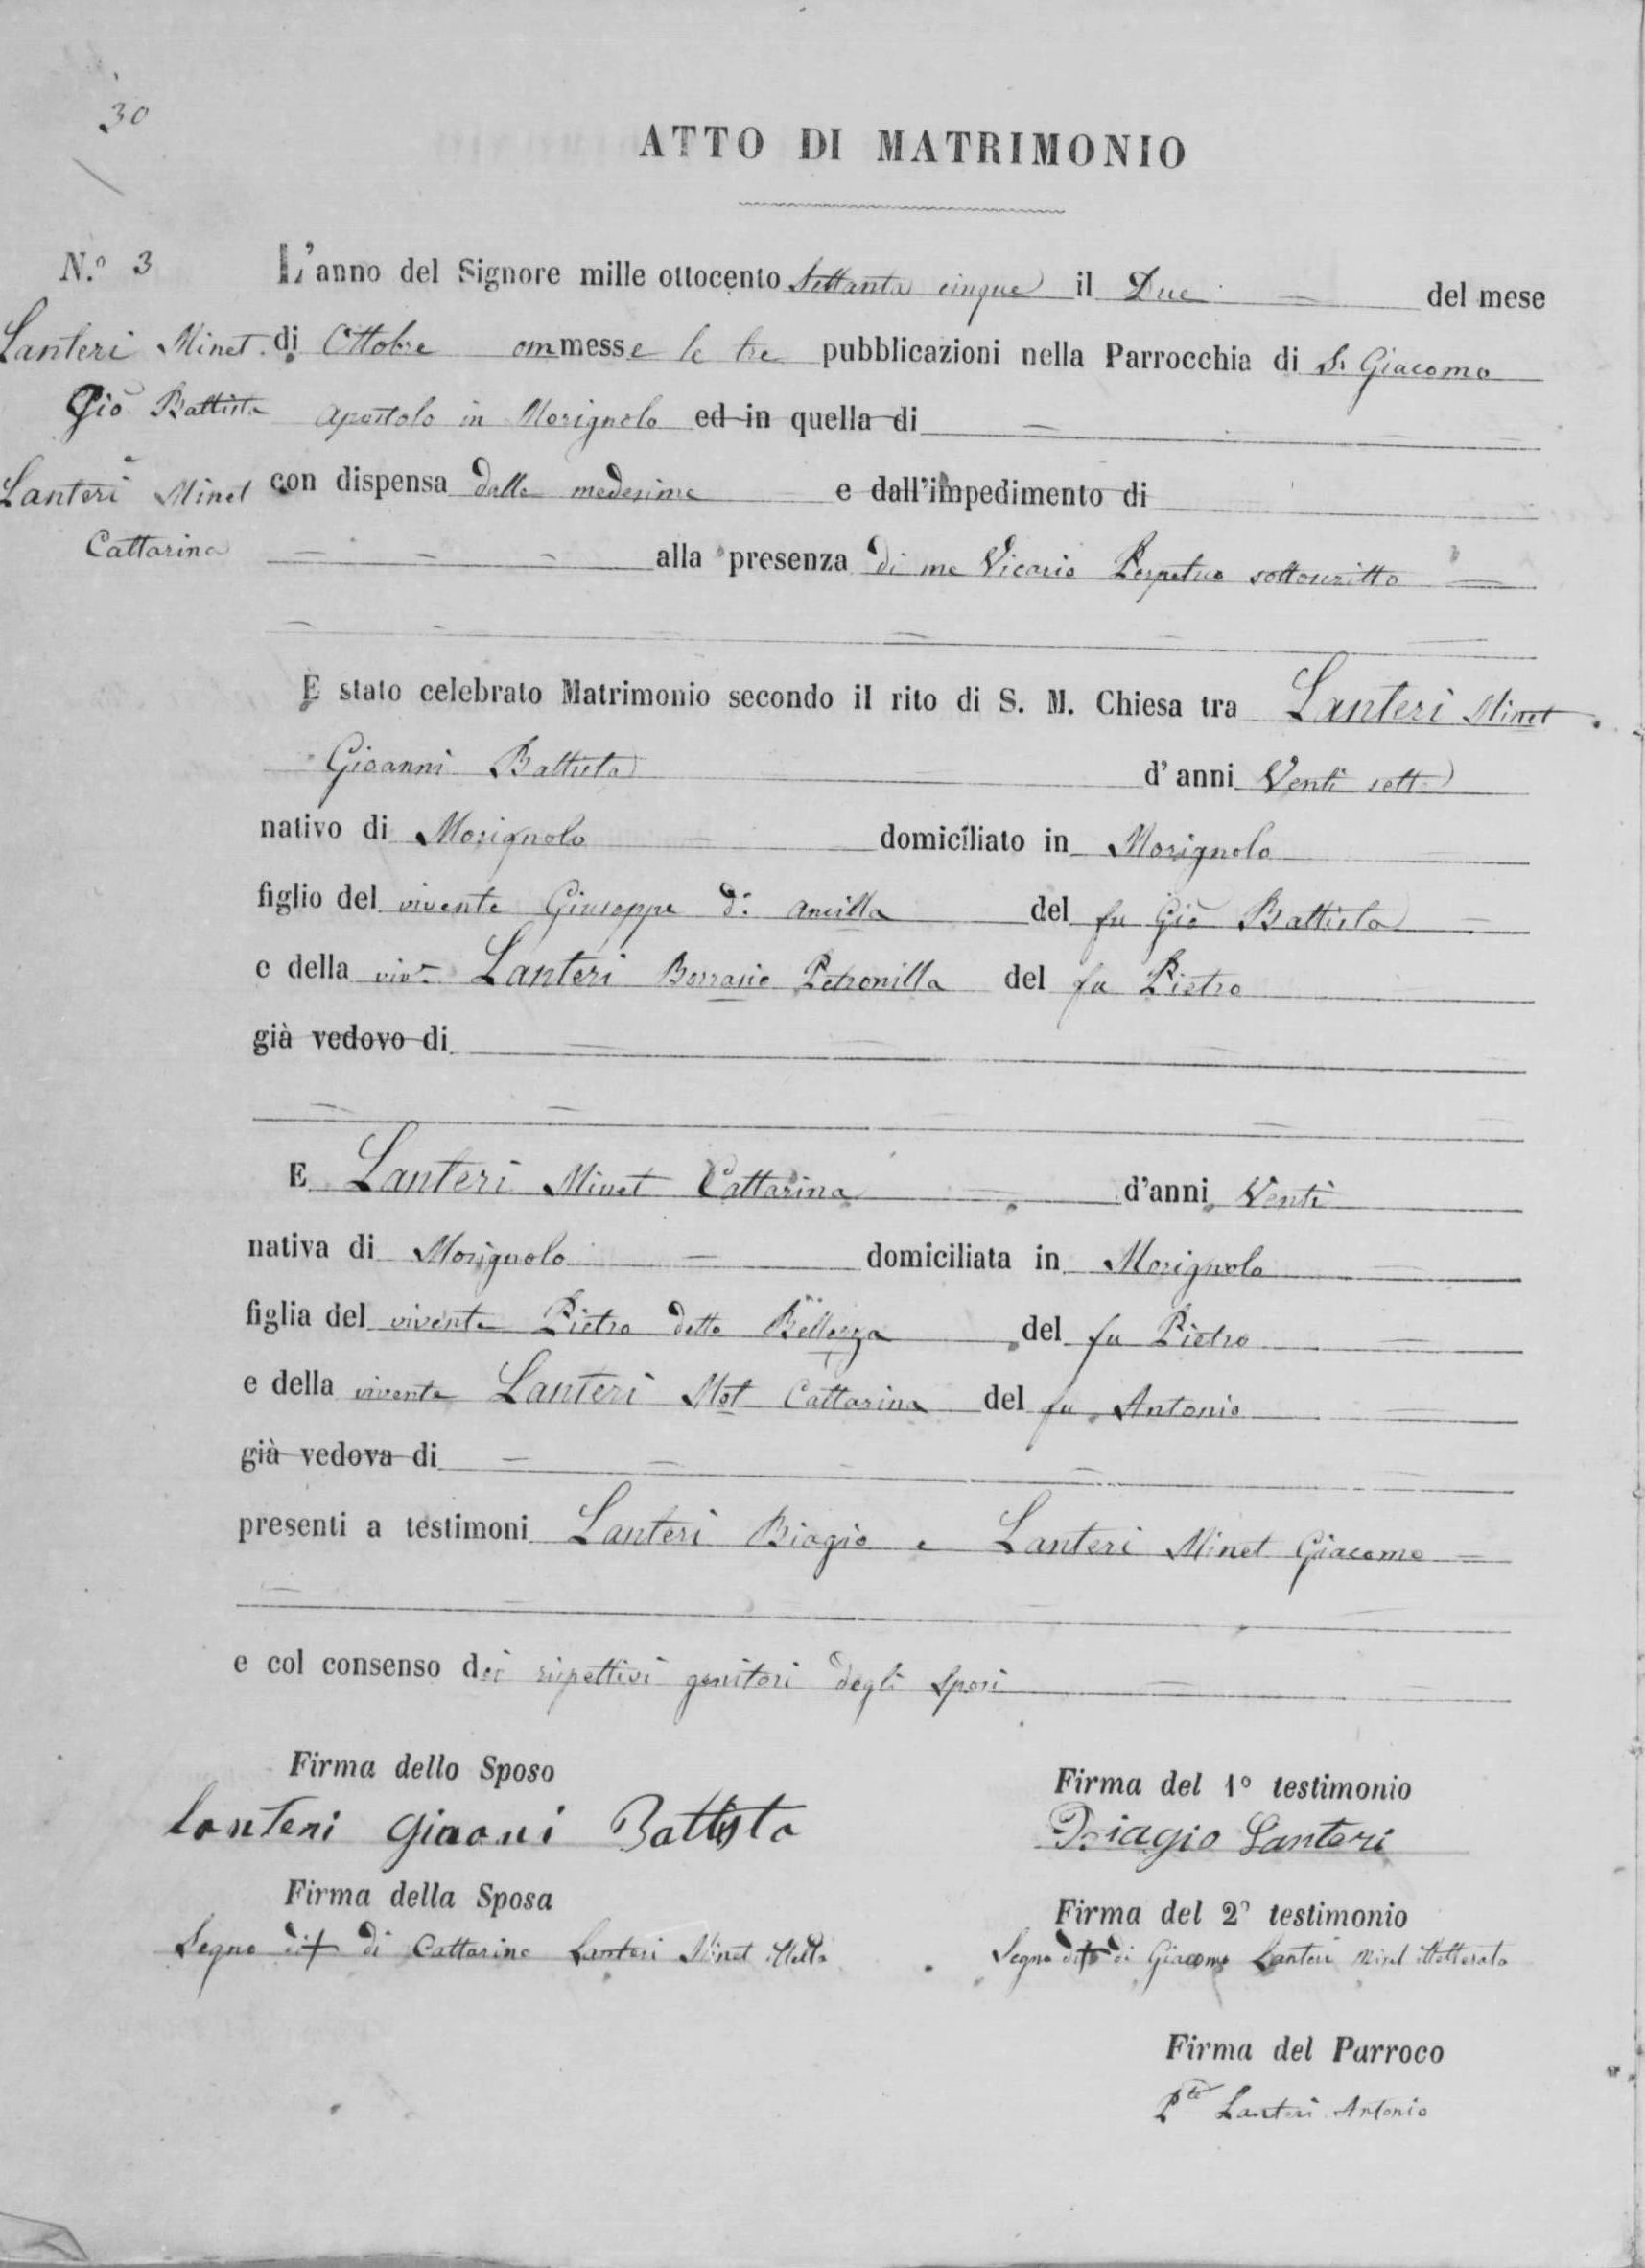 30
ATTO DI MATRIMONIO
N.º 3
L'anno del Signore mille ottocento Settanta cinque il Due del mese
Lanteri Minet
di Ottobre ommesse le tre pubblicazioni nella Parrocchia di S. Giacomo
Giò Battista
apostolo in Morignolo ed in quella di
e
Lanteri Minet
con dispensa dalle medesime e dall'impedimento di
Cattarina
alla presenza di me Vicario Perpetuo sottoscritto
È stato celebrato Matrimonio secondo il rito di S. M. Chiesa tra Lanteri Minet
Gioanni Battista d'anni Venti sette
nativo di Morignolo domiciliato in Morignolo
figlio del vivente Giuseppe di del fu Giò Battista
e della viv.e Lanteri Petronilla del fu Pietro
già vedovo di
E Lanteri Minet Cattarina d'anni Venti
nativa di Morignolo domiciliata in Morignolo
figlia del vivente Pietro detto Bellezza del fu Pietro
e della vivente Lanteri Mot Cattarina del fu Antonio
già vedova di
presenti a testimoni Lanteri Biagio e Lanteri Minet Giacomo
e col consenso dei rispettivi genitori degli sposi
Firma dello Sposo
Lanteri Giaoni Battista
Firma del 1º testimonio
Biagio Lanteri
Firma della Sposa
Segno di + di Cattarina Lanteri Minet
Firma del 2º testimonio
Segno di + di Giacomo Lanteri Minet illetterato
Firma del Parroco
P.te Lanteri Antonio